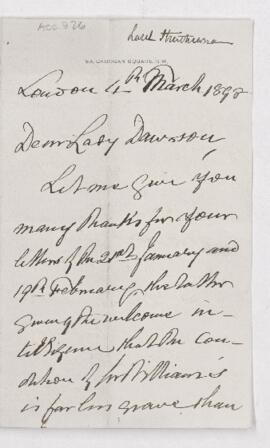 ACC 826
Lord Strathcona
53, CADOGAN SQUARE, S.W.
London 4th March 1898
Dear Lady Dawson
Let me give you
many thanks for your
letters of the 21st January and
19th February, the latter
giving the welcome in-
telligence that the con-
dition of Sir William's
is far less grave than